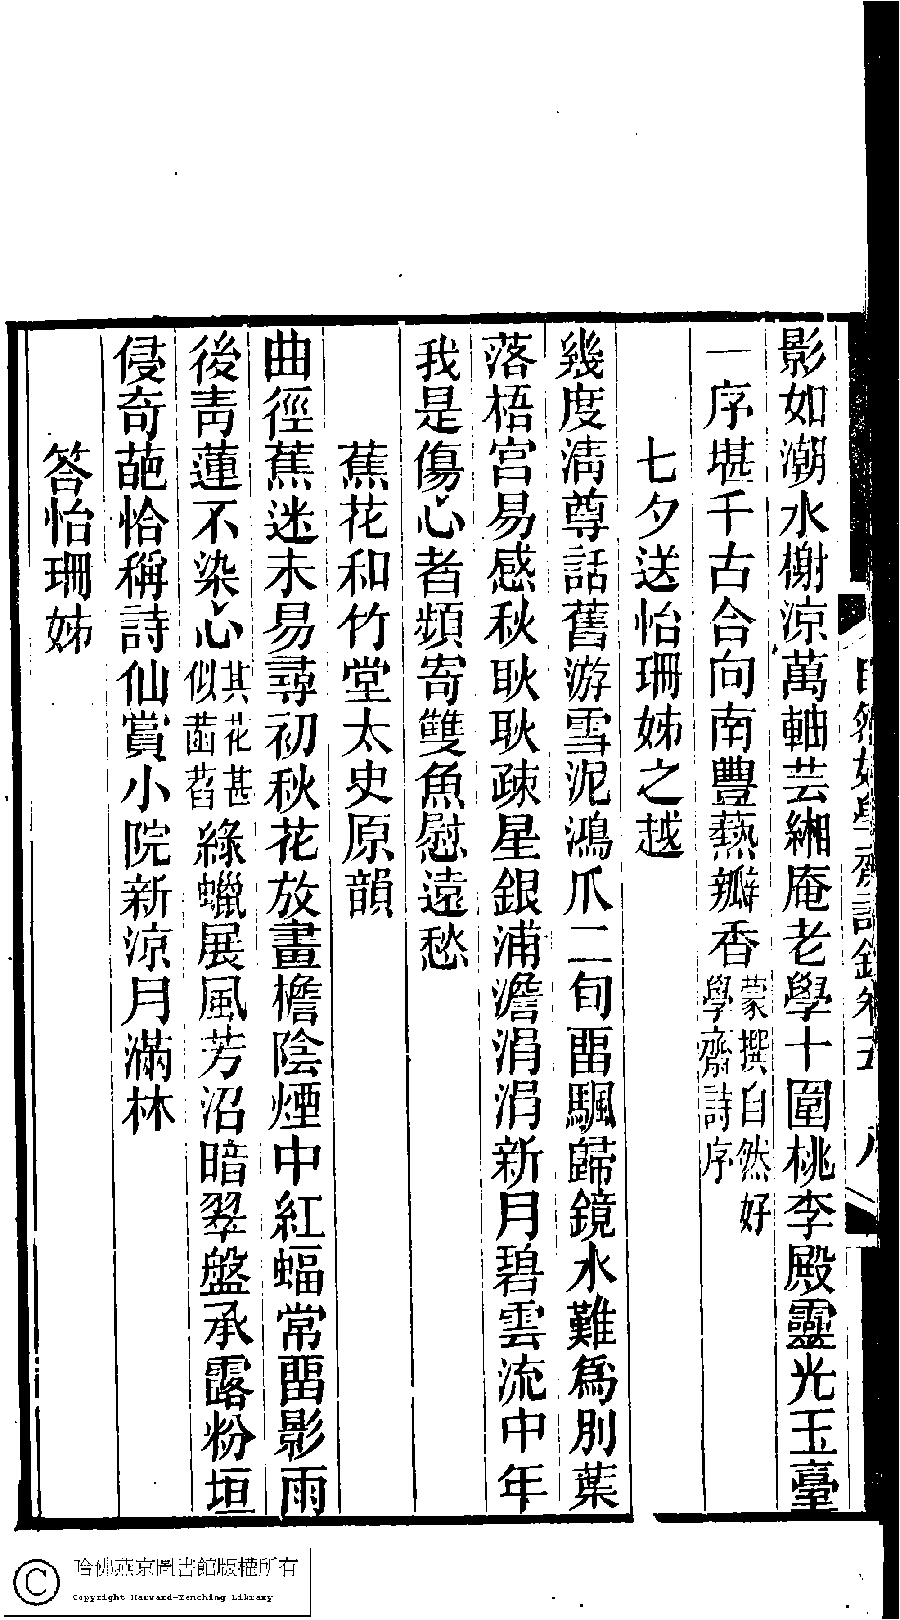 影如潮水榭涼萬軸芸緗庵老學十圍桃李殿靈光玉臺
一序堪千古合向南豐爇瓣香蒙撰自然好學齋詩序
七夕送怡珊姊之越
幾度清尊話舊游雪泥鴻爪二旬畱颿歸鏡水難爲別葉
落梧宮易感秋耿耿疎星銀浦澹涓涓新月碧雲流中年
我是傷心者頻寄雙魚慰遠愁
蕉花和竹堂太史原韻
曲徑蕉迷未易尋初秋花放畫檐陰煙中紅蝠常畱影雨
後青蓮不染心其花甚似菡萏綠蠟展風芳沼暗翠盤承露粉垣
侵奇葩恰稱詩仙賞小院新涼月滿林
答怡珊姊
自然好學齋詩鈔卷五 八
哈佛燕京圖書館版權所有
Copyright Harvard-Yenching Library